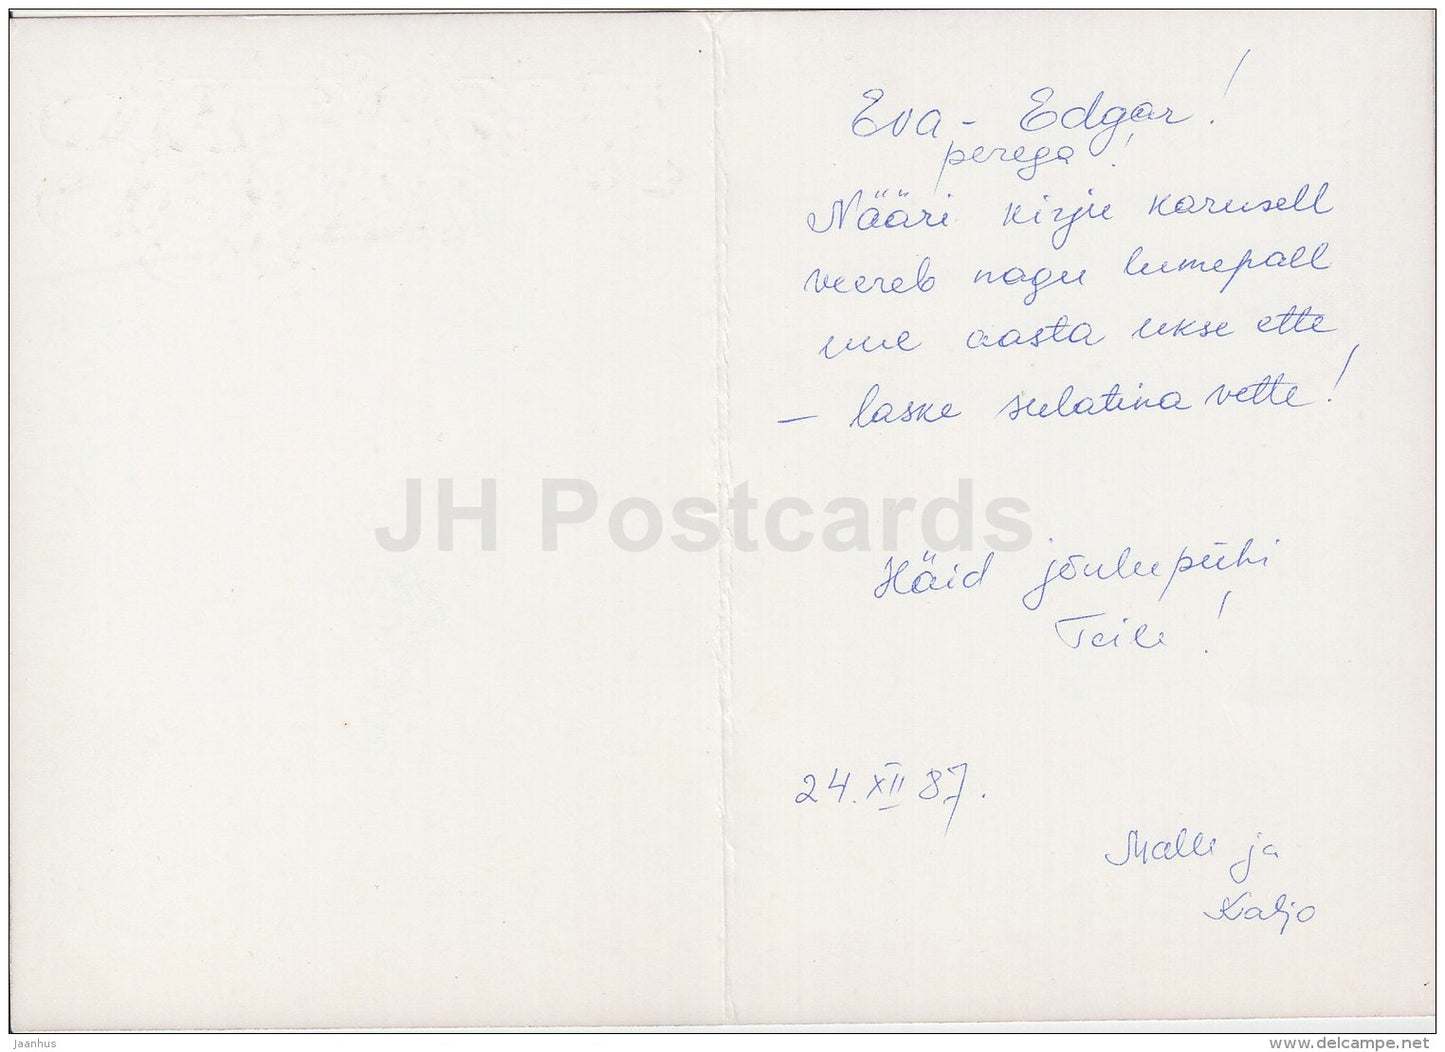 Eva - Edgar!
perega!
Nääri kirju karusell
veereb nagu lumepall
uue aasta ukse ette
– laske sulatina vette!
JH Postcards
Häid jõulupühi
Teile!
24. XII 87.
Malle ja
Kaljo
jaanhus
www.delcampe.net